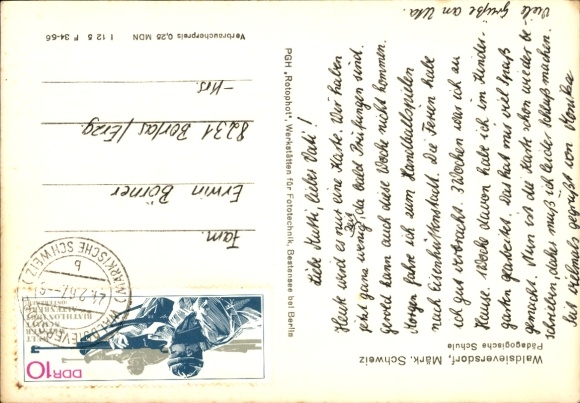 Waldsieversdorf, Märk. Schweiz
Pädagogische Schule
Liebe Mutti, lieber Vati!
Heute wird es nur eine Karte. Wir haben
jetzt ganz wenig Zeit, da bald Prüfungen sind.
Gerold kann auch diese Woche nicht kommen.
Morgen fahre ich zum Handballspielen
nach Eisenhüttenstadt. Die Ferien habe
ich gut verbracht. 3 Wochen war ich zu
Hause. 1 Woche davon habe ich im Kinder-
garten gearbeitet. Das hat mir viel Spaß
gemacht. Nun ist die Karte schon wieder be-
schrieben, daher muß ich leider Schluß machen.
Seid vielmals gegrüßt von Monika
Viele Grüße an Uta.
PGH „Rotophot", Werkstätten für Fototechnik, Bestensee bei Berlin
Fam.
Erwin Börner
8231 Borlas/Erzg.
-Nrs.
Verbraucherpreis 0,25 MDN I 12 5 F 34-66
(MÄRKISCHE SCHWEIZ)
b
DDR 10